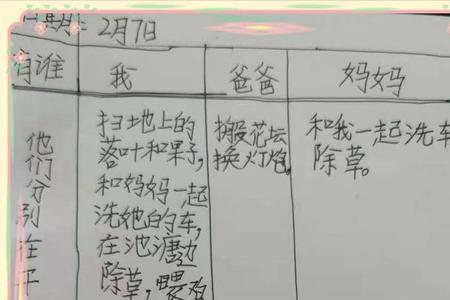 2月7日
有谁
我
爸爸
妈妈
他们分别在干
扫地上的
落叶和果子,
和妈妈一起
洗她的车,
在池溏边
除草,
搬花坛
换灯炮。
和我一起洗车
除草。